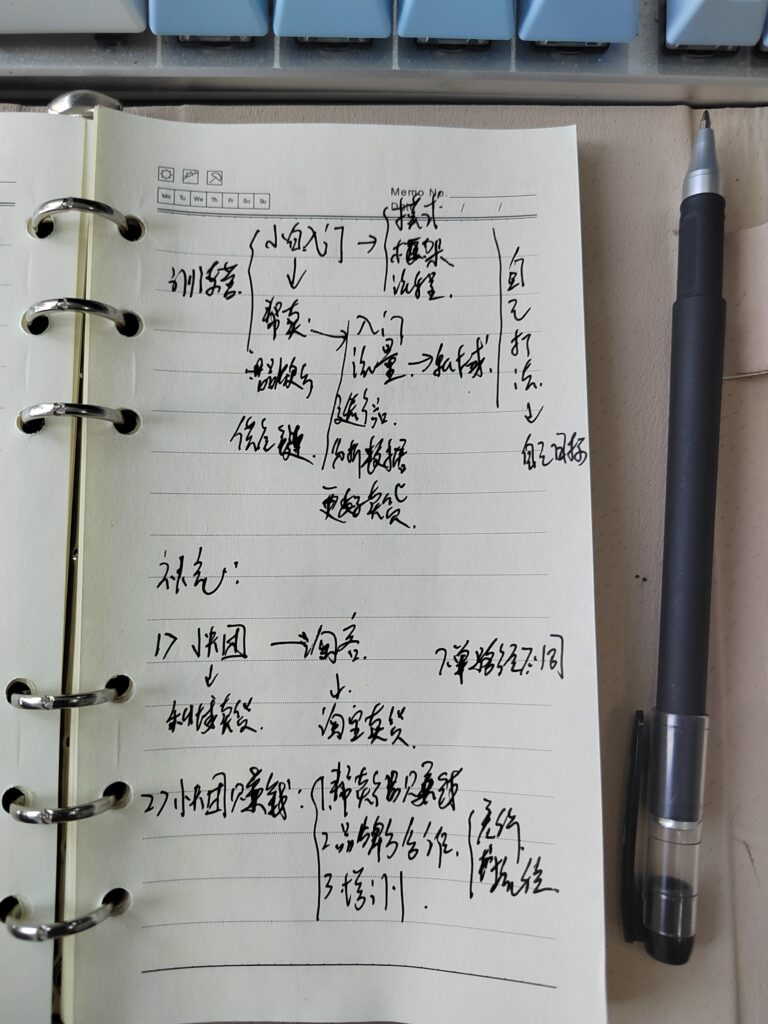 Memo No.
Mo Tu We Th Fr Sa Su
/ /
训练营
小白入门 → 模式
框架
流程
↓
帮卖 → 入门
流量 → 私域
选品
分析数据
更好卖货
自己打法
↓
自己目标
补充:
1> 快团 → 淘客
↓ ↓
私域卖货 淘宝卖货
下单路径不同
2> 快团赚钱:
1 帮卖 赚钱
2 品牌方合作
3 培训